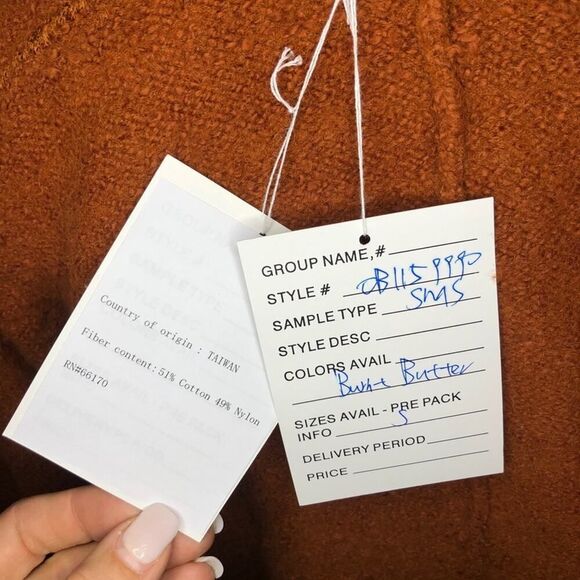 Country of origin : TAIWAN
Fiber content:51% Cotton 49% Nylon
RN#66170
GROUP NAME,#
STYLE # OB1159990
SAMPLE TYPE SMS
STYLE DESC
COLORS AVAIL
Burnt Butter
SIZES AVAIL - PRE PACK
INFO S
DELIVERY PERIOD
PRICE